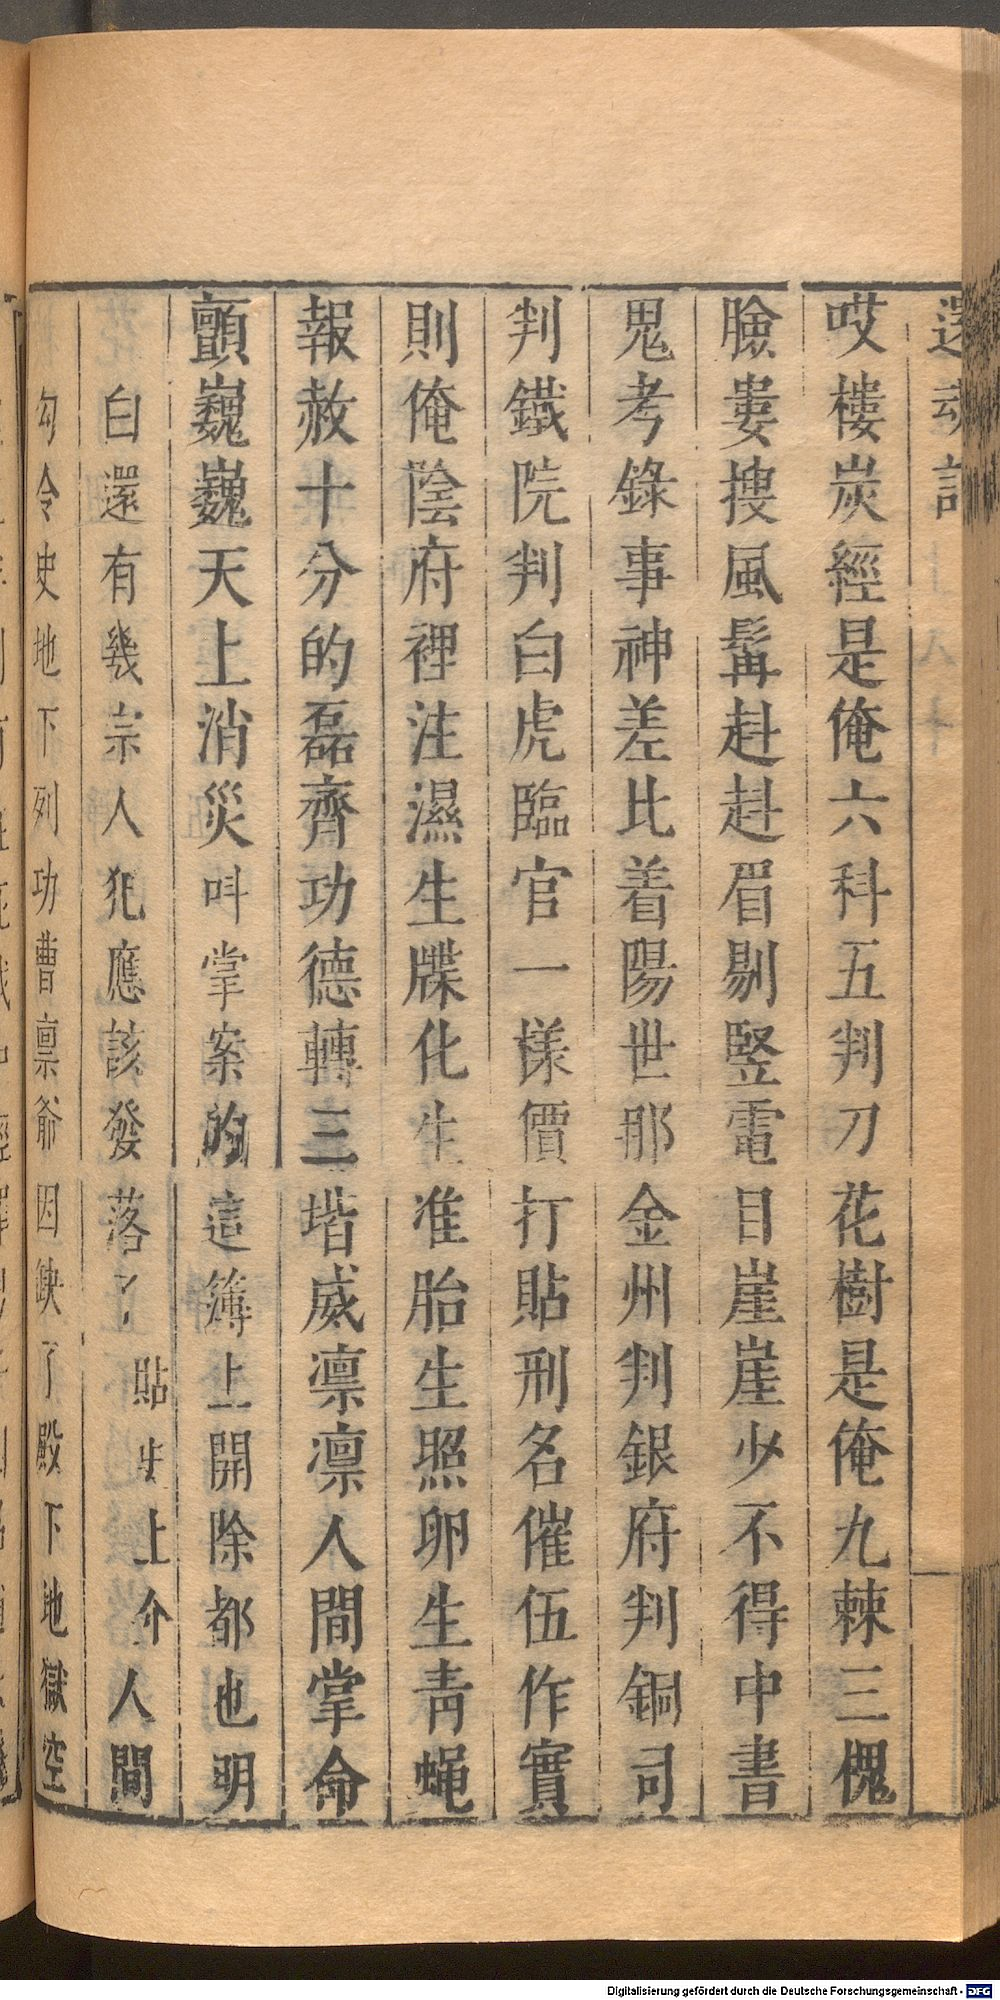 還魂記
哎樓炭經是俺六科五判刀花樹是俺九棘三槐
臉婁搜風髯赳赳眉剔竪電目崖崖少不得中書
鬼考錄事神差比着陽世那金州判銀府判銅司
判鐵院判白虎臨官一樣價打貼刑名催伍作實
則俺陰府裡注濕生牒化生准胎生照卵生青蠅
報赦十分的磊齊功德轉三堦威凛凛人間掌命
顫巍巍天上消災叫掌案的這簿上開除都也明
白還有幾宗人犯應該發落了貼上介人間
勾令史地下列功曹禀爺因缺了殿下地獄空
Digitalisierung gefördert durch die Deutsche Forschungsgemeinschaft - DFG